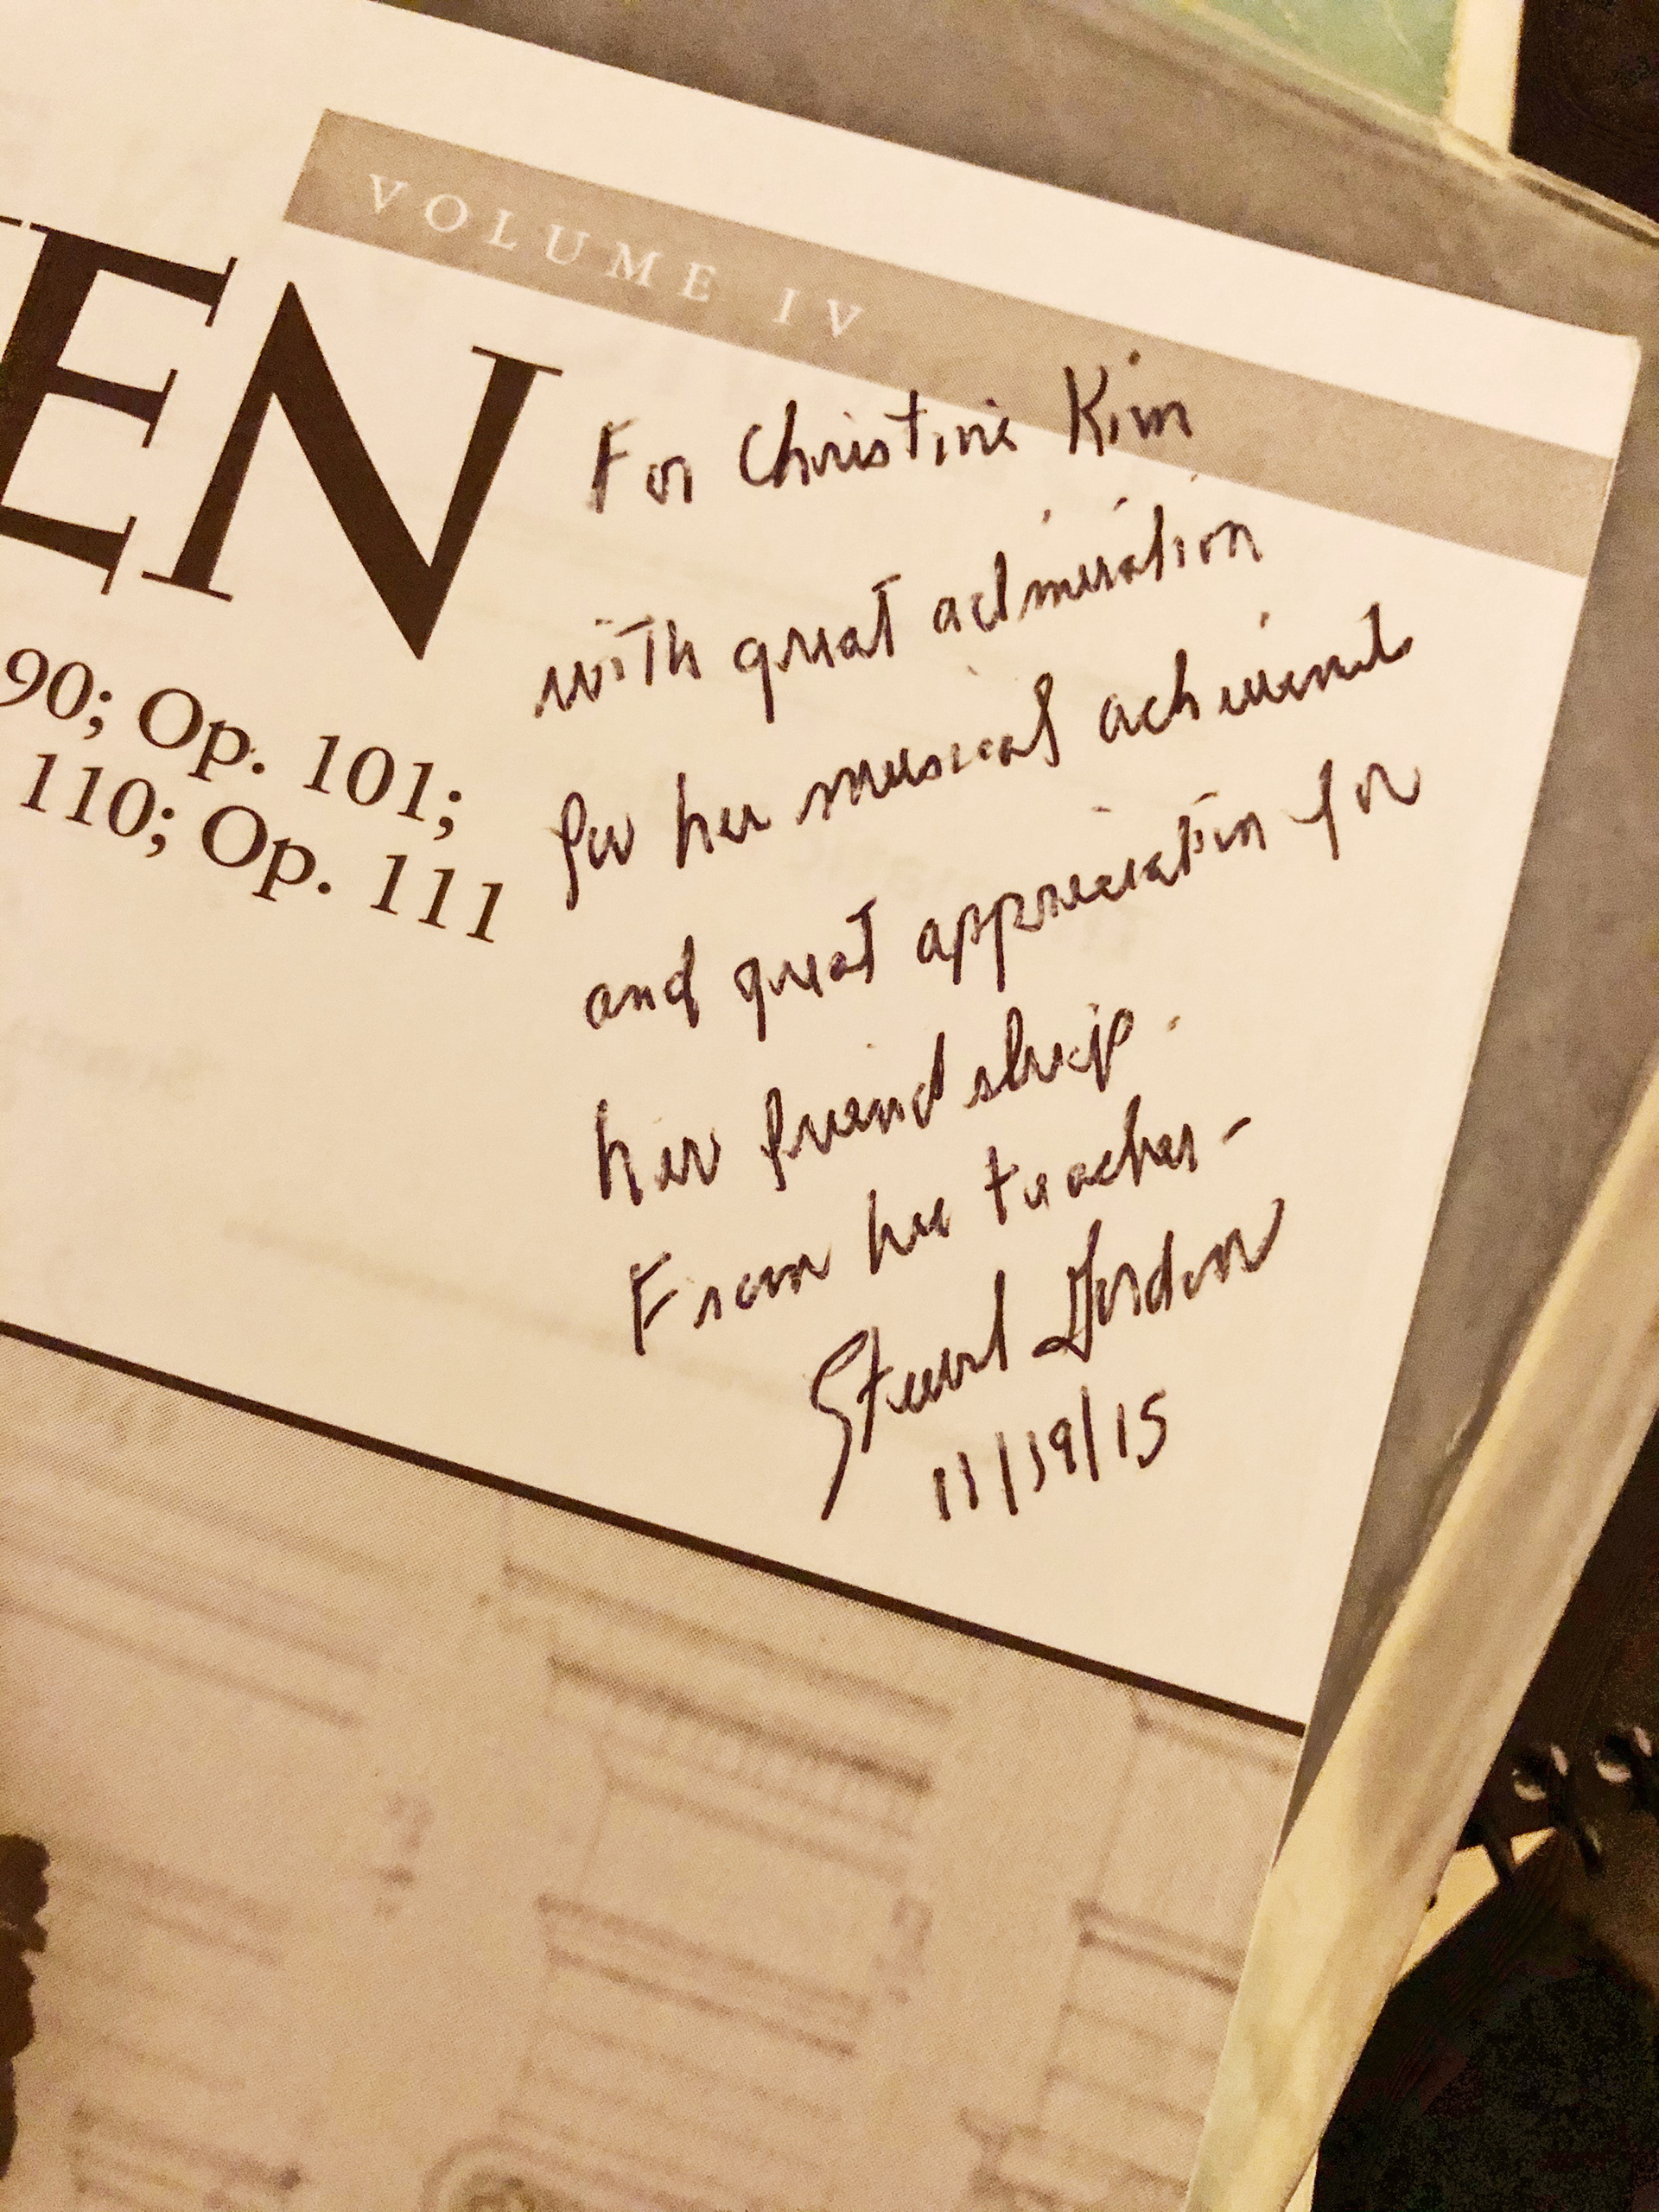 VOLUME IV
EN
90; Op. 101;
110; Op. 111
For Christine Kim
with great admiration
for her musical achievement
and great appreciation for
her friendship.
From her teacher -
Stewart Gordon
11/19/15